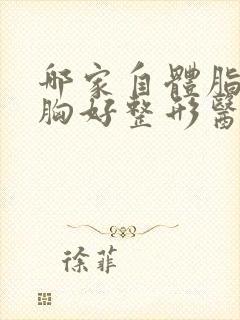 哪家自體脂
胸好整形醫
徐菲